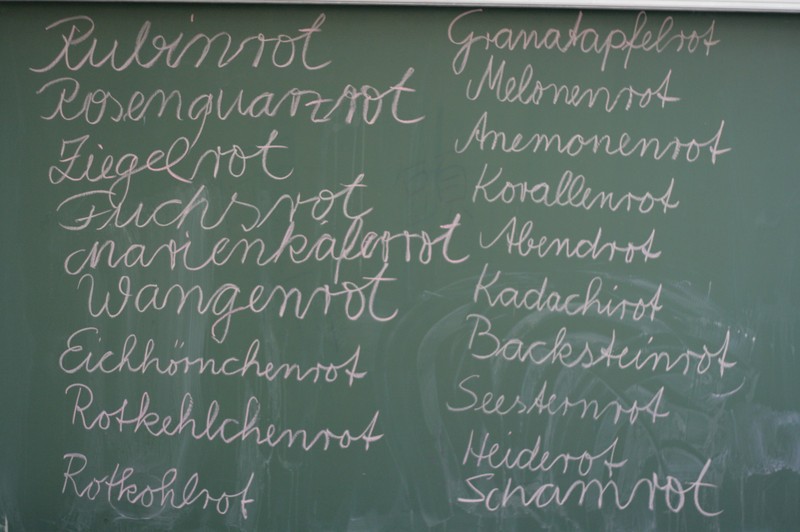 Rubinrot
Rosenquarzrot
Ziegelrot
Fuchsrot
Marienkäferrot
Wangenrot
Eichhörnchenrot
Rotkehlchenrot
Rotkohlrot
Granatapfelrot
Melonenrot
Anemonenrot
Korallenrot
Abendrot
Kadachirot
Backsteinrot
Seesternrot
Heiderot
Schamrot